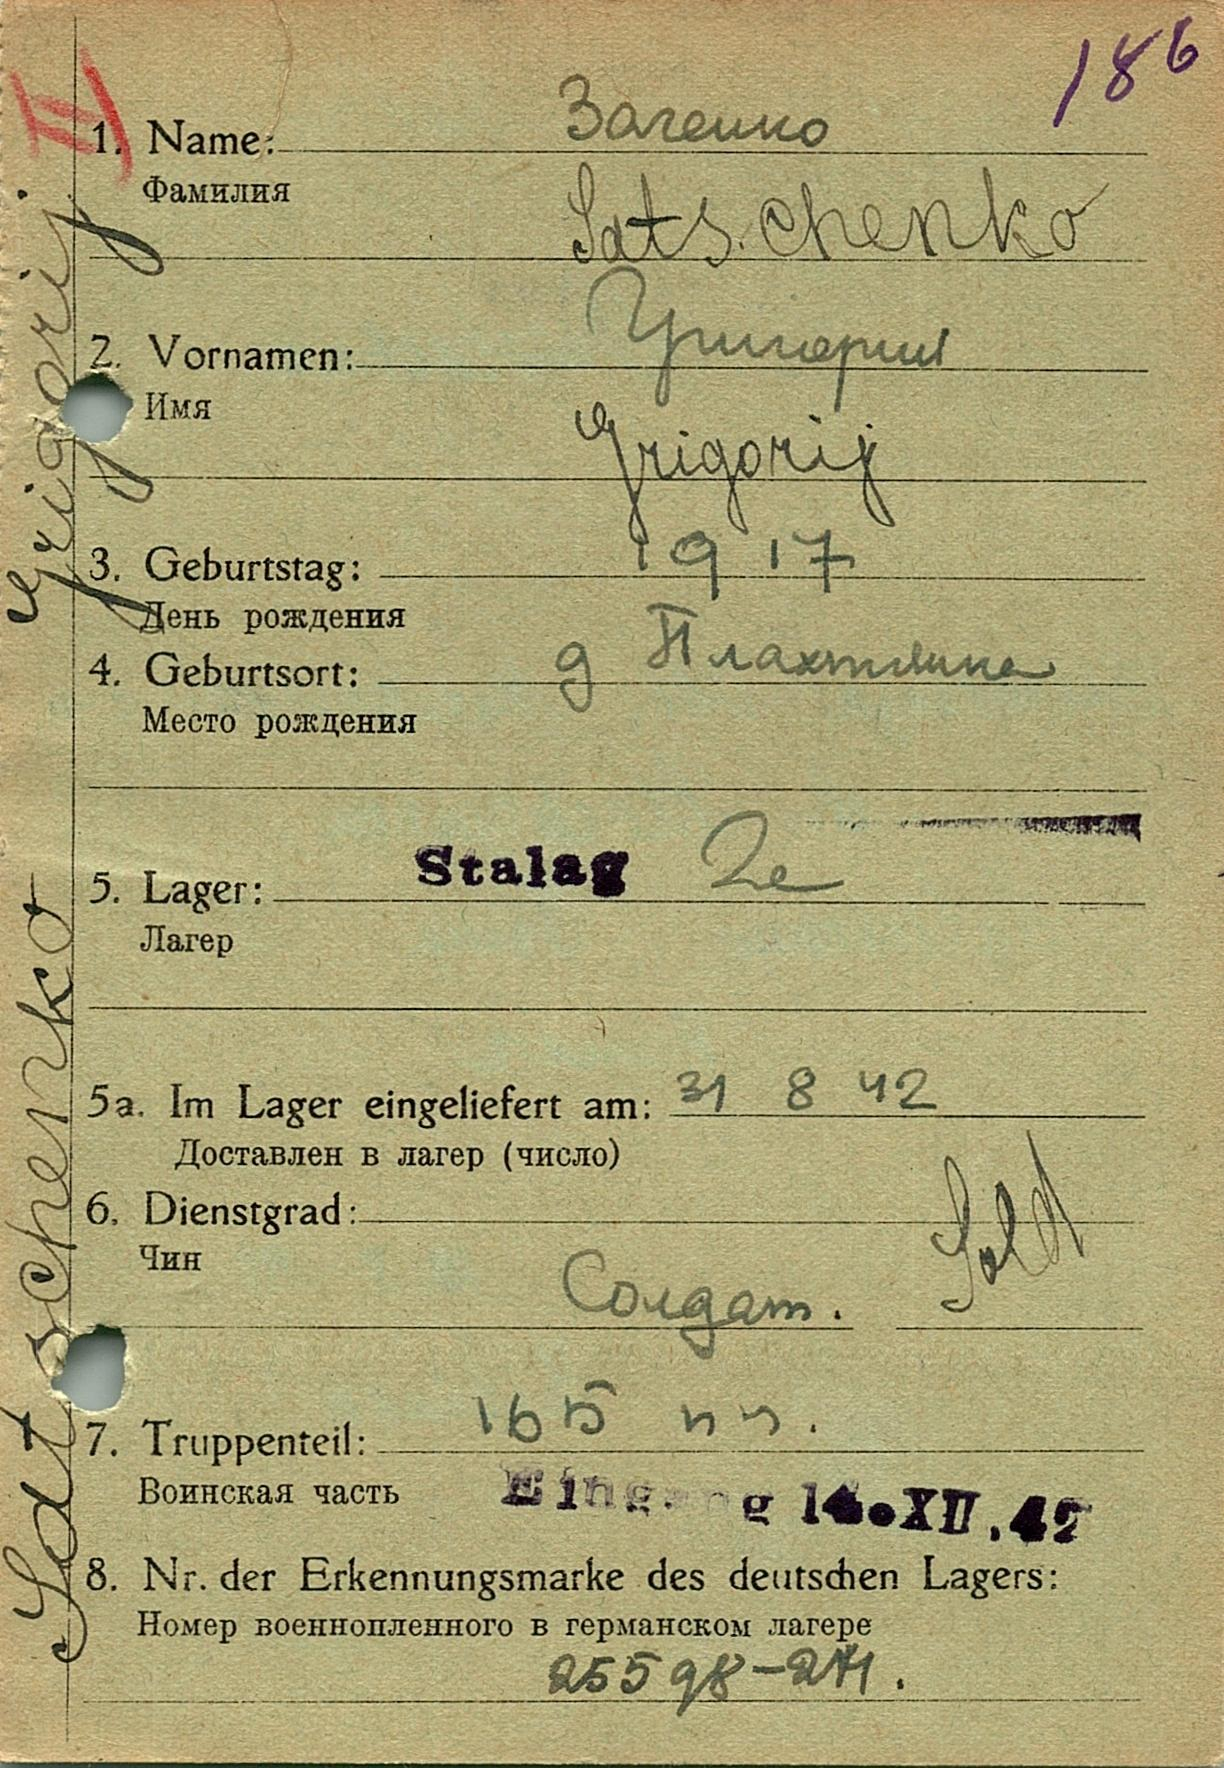 186
1. Name: Заченко
Фамилия
Satschenko
2. Vornamen: Григорий
Имя
Grigorij
3. Geburtstag: 1917
День рождения
4. Geburtsort: д Плахтянка
Место рождения
5. Lager: Stalag 2e
Лагер
5a. Im Lager eingeliefert am: 31 8 42
Доставлен в лагер (число)
6. Dienstgrad: Sold
Чин
Солдат.
7. Truppenteil: 165 пп.
Воинская часть
Eingang 14.XII.42
8. Nr. der Erkennungsmarke des deutschen Lagers:
Номер военнопленного в германском лагере
25598-2A.
Satschenko Grigorij